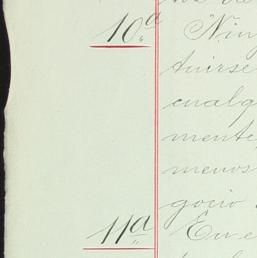 10.ª Nin
tuirse
cualq
mente
menos
gocio
11.ª En e